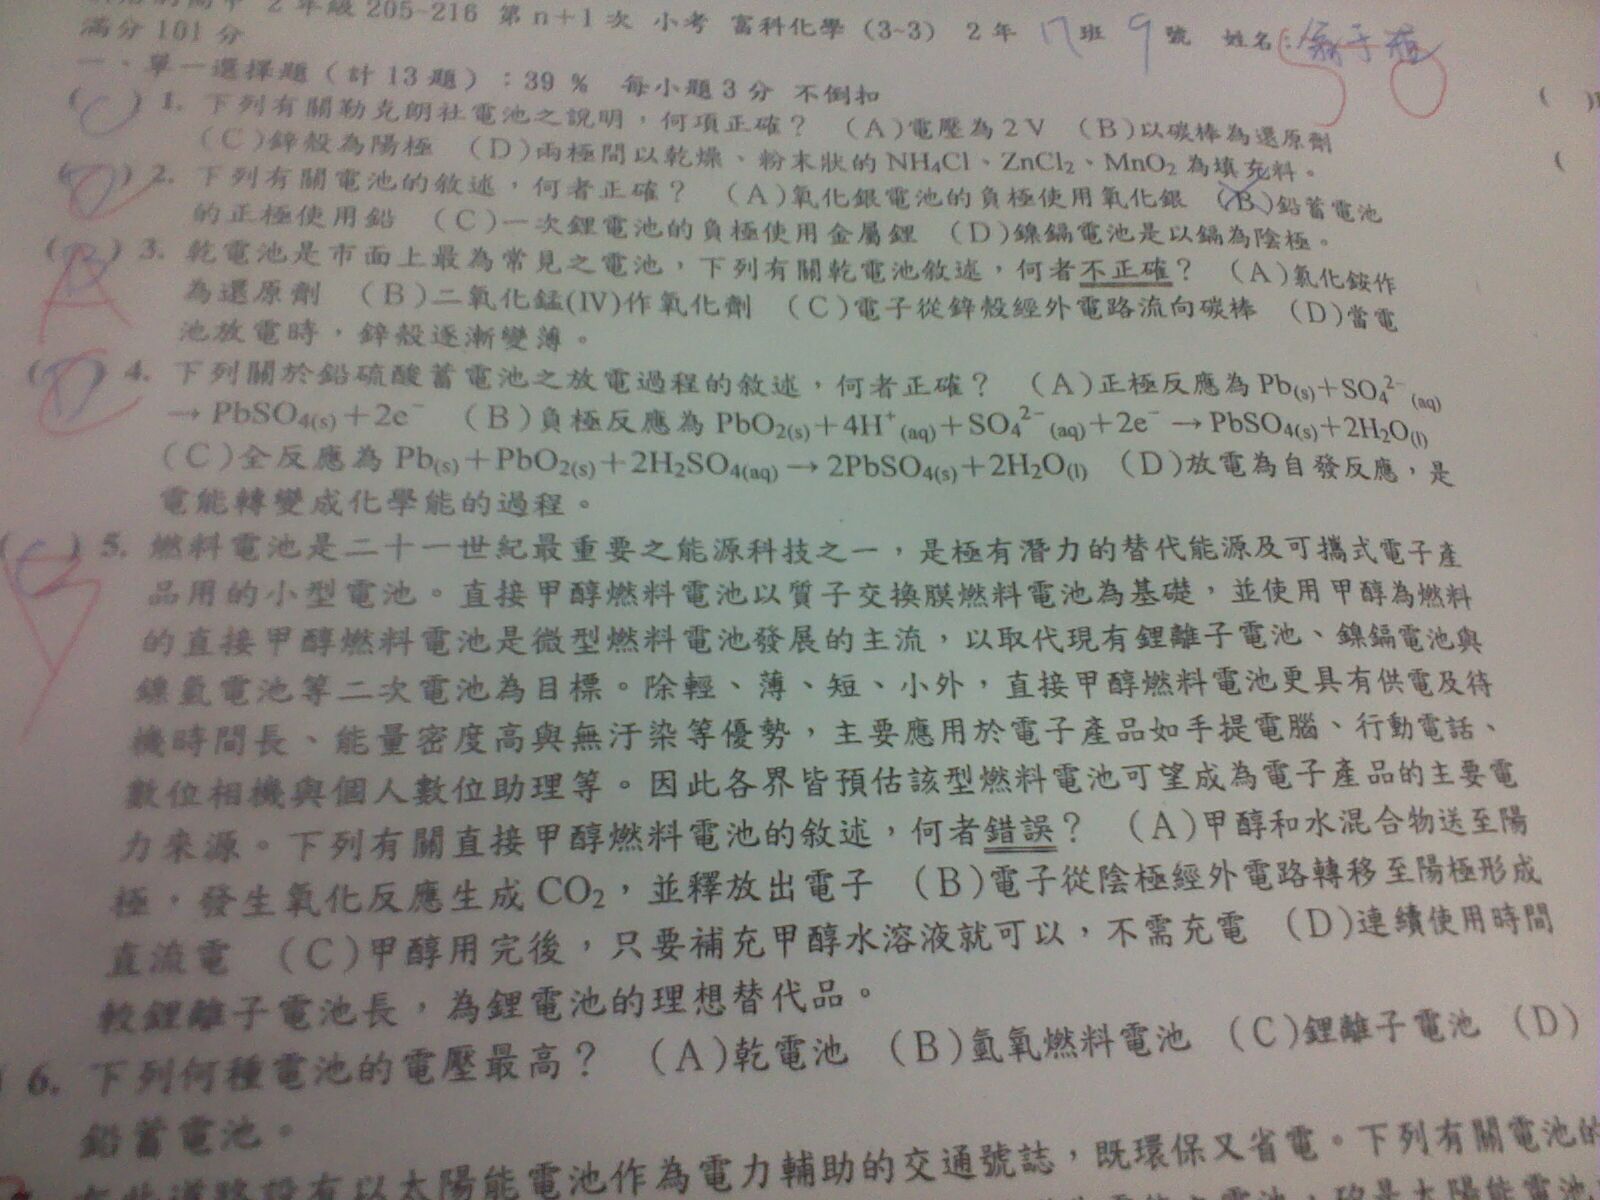 2年級205~216 第n+1次 小考 富科化學 (3~3) 2年 17班 9號 姓名: 50
滿分101分
一、單一選擇題(計13題):39% 每小題3分 不倒扣
(C) 1. 下列有關勒克朗社電池之說明,何項正確? (A)電壓為2V (B)以碳棒為還原劑
(C)鋅殼為陽極 (D)兩極間以乾燥、粉末狀的NH₄Cl、ZnCl₂、MnO₂為填充料。
( ) 2. 下列有關電池的敘述,何者正確? (A)氧化銀電池的負極使用氧化銀 (B)鉛蓄電池
的正極使用鉛 (C)一次鋰電池的負極使用金屬鋰 (D)鎳鎘電池是以鎘為陰極。
( ) A 3. 乾電池是市面上最為常見之電池,下列有關乾電池敘述,何者不正確? (A)氯化銨作
為還原劑 (B)二氧化錳(IV)作氧化劑 (C)電子從鋅殼經外電路流向碳棒 (D)當電
池放電時,鋅殼逐漸變薄。
( ) 4. 下列關於鉛硫酸蓄電池之放電過程的敘述,何者正確? (A)正極反應為Pb(s)+SO₄²⁻(aq)
→PbSO₄(s)+2e⁻ (B)負極反應為PbO₂(s)+4H⁺(aq)+SO₄²⁻(aq)+2e⁻→PbSO₄(s)+2H₂O(l)
(C)全反應為Pb(s)+PbO₂(s)+2H₂SO₄(aq)→2PbSO₄(s)+2H₂O(l) (D)放電為自發反應,是
電能轉變成化學能的過程。
( ) 5. 燃料電池是二十一世紀最重要之能源科技之一,是極有潛力的替代能源及可攜式電子產
品用的小型電池。直接甲醇燃料電池以質子交換膜燃料電池為基礎,並使用甲醇為燃料
的直接甲醇燃料電池是微型燃料電池發展的主流,以取代現有鋰離子電池、鎳鎘電池與
鎳氫電池等二次電池為目標。除輕、薄、短、小外,直接甲醇燃料電池更具有供電及待
機時間長、能量密度高與無汙染等優勢,主要應用於電子產品如手提電腦、行動電話、
數位相機與個人數位助理等。因此各界皆預估該型燃料電池可望成為電子產品的主要電
力來源。下列有關直接甲醇燃料電池的敘述,何者錯誤? (A)甲醇和水混合物送至陽
極,發生氧化反應生成CO₂,並釋放出電子 (B)電子從陰極經外電路轉移至陽極形成
直流電 (C)甲醇用完後,只要補充甲醇水溶液就可以,不需充電 (D)連續使用時間
較鋰離子電池長,為鋰電池的理想替代品。
) 6. 下列何種電池的電壓最高? (A)乾電池 (B)氫氧燃料電池 (C)鋰離子電池 (D)
鉛蓄電池。
設有以太陽能電池作為電力輔助的交通號誌,既環保又省電。下列有關電池的